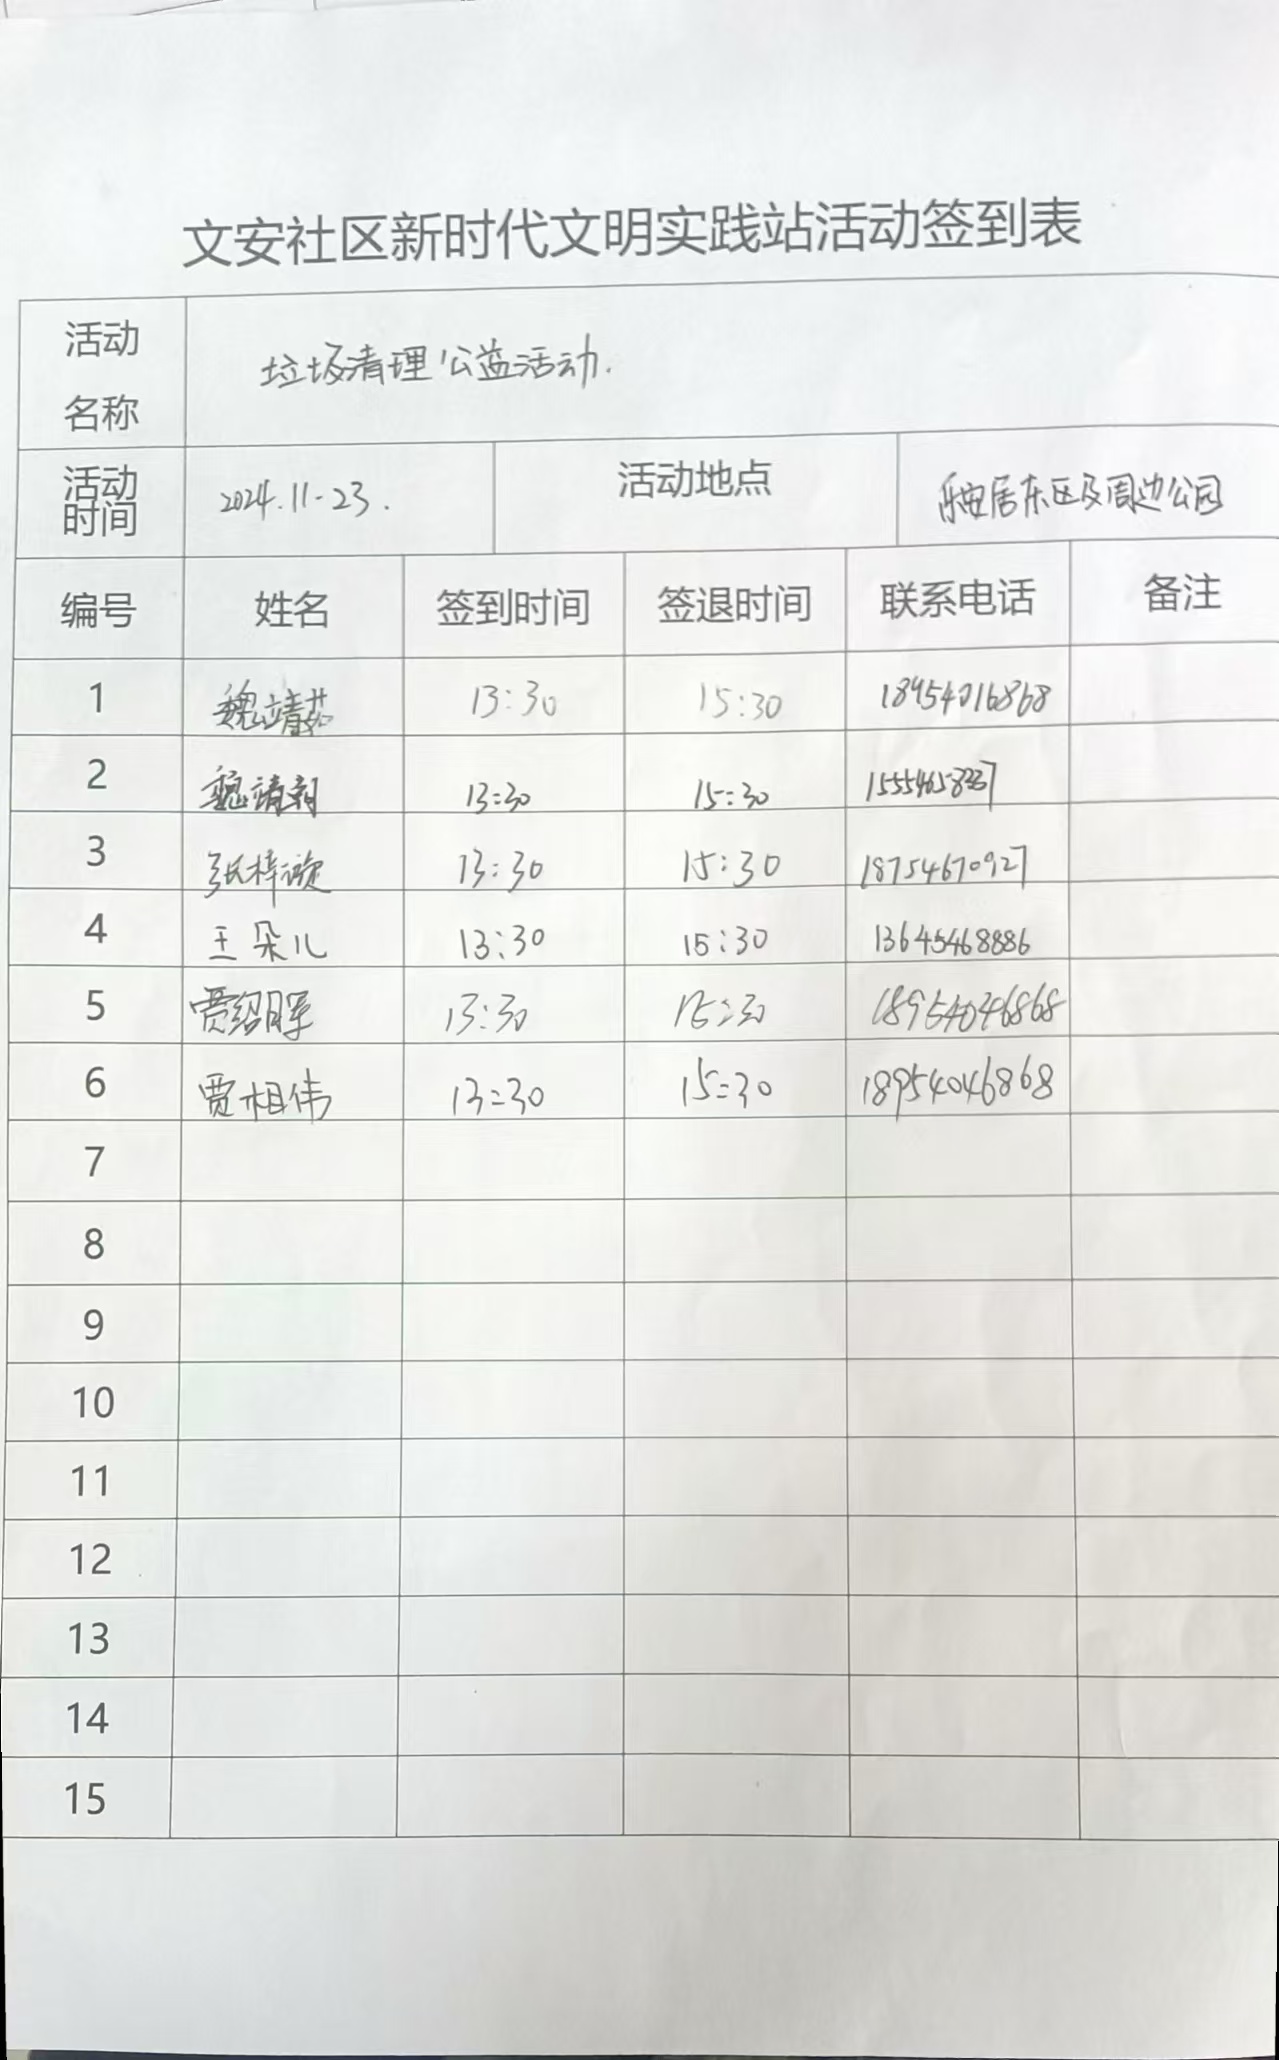 文安社区新时代文明实践站活动签到表
活动名称 垃圾清理公益活动.
活动时间 2024.11-23. 活动地点 乐安居东区及周边公园
编号 姓名 签到时间 签退时间 联系电话 备注
1 魏靖茹 13:30 15:30 18954016868
2 魏靖 13:30 15:30
3 张梓璇 13:30 15:30 18754670927
4 王朵儿 13:30 15:30 13645468886
5 贾绍晖 13:30 15:30 18954046868
6 贾相伟 13:30 15:30 18954046868
7
8
9
10
11
12
13
14
15